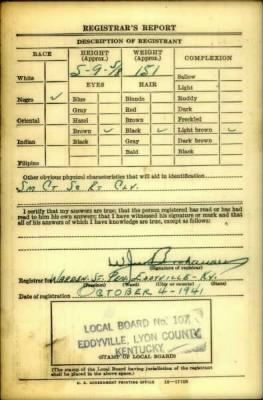 REGISTRAR'S REPORT
DESCRIPTION OF REGISTRANT
RACE HEIGHT (Approx.) WEIGHT (Approx.) COMPLEXION
5-9 5/8 151
White Sallow
EYES HAIR Light
Negro ✓ Blue Blonde Ruddy
Gray Red Dark
Oriental Hazel Brown Freckled
Brown ✓ Black ✓ Light brown ✓
Indian Black Gray Dark brown
Bald Black
Filipino
Other obvious physical characteristics that will aid in identification
Sm Ct
I certify that my answers are true; that the person registered has read or has had read to him his own answers; that I have witnessed his signature or mark and that all of his answers of which I have knowledge are true, except as follows:
(Signature of registrar)
Registrar for WARDEN, ST. PEN. EDDYVILLE - KY.
(Precinct) (Ward) (City or county) (State)
Date of registration OCTOBER 4-1941
LOCAL BOARD No. 107
EDDYVILLE, LYON COUNTY
KENTUCKY
(STAMP OF LOCAL BOARD)
(The stamp of the Local Board having jurisdiction of the registrant shall be placed in the above space.)
U. S. GOVERNMENT PRINTING OFFICE